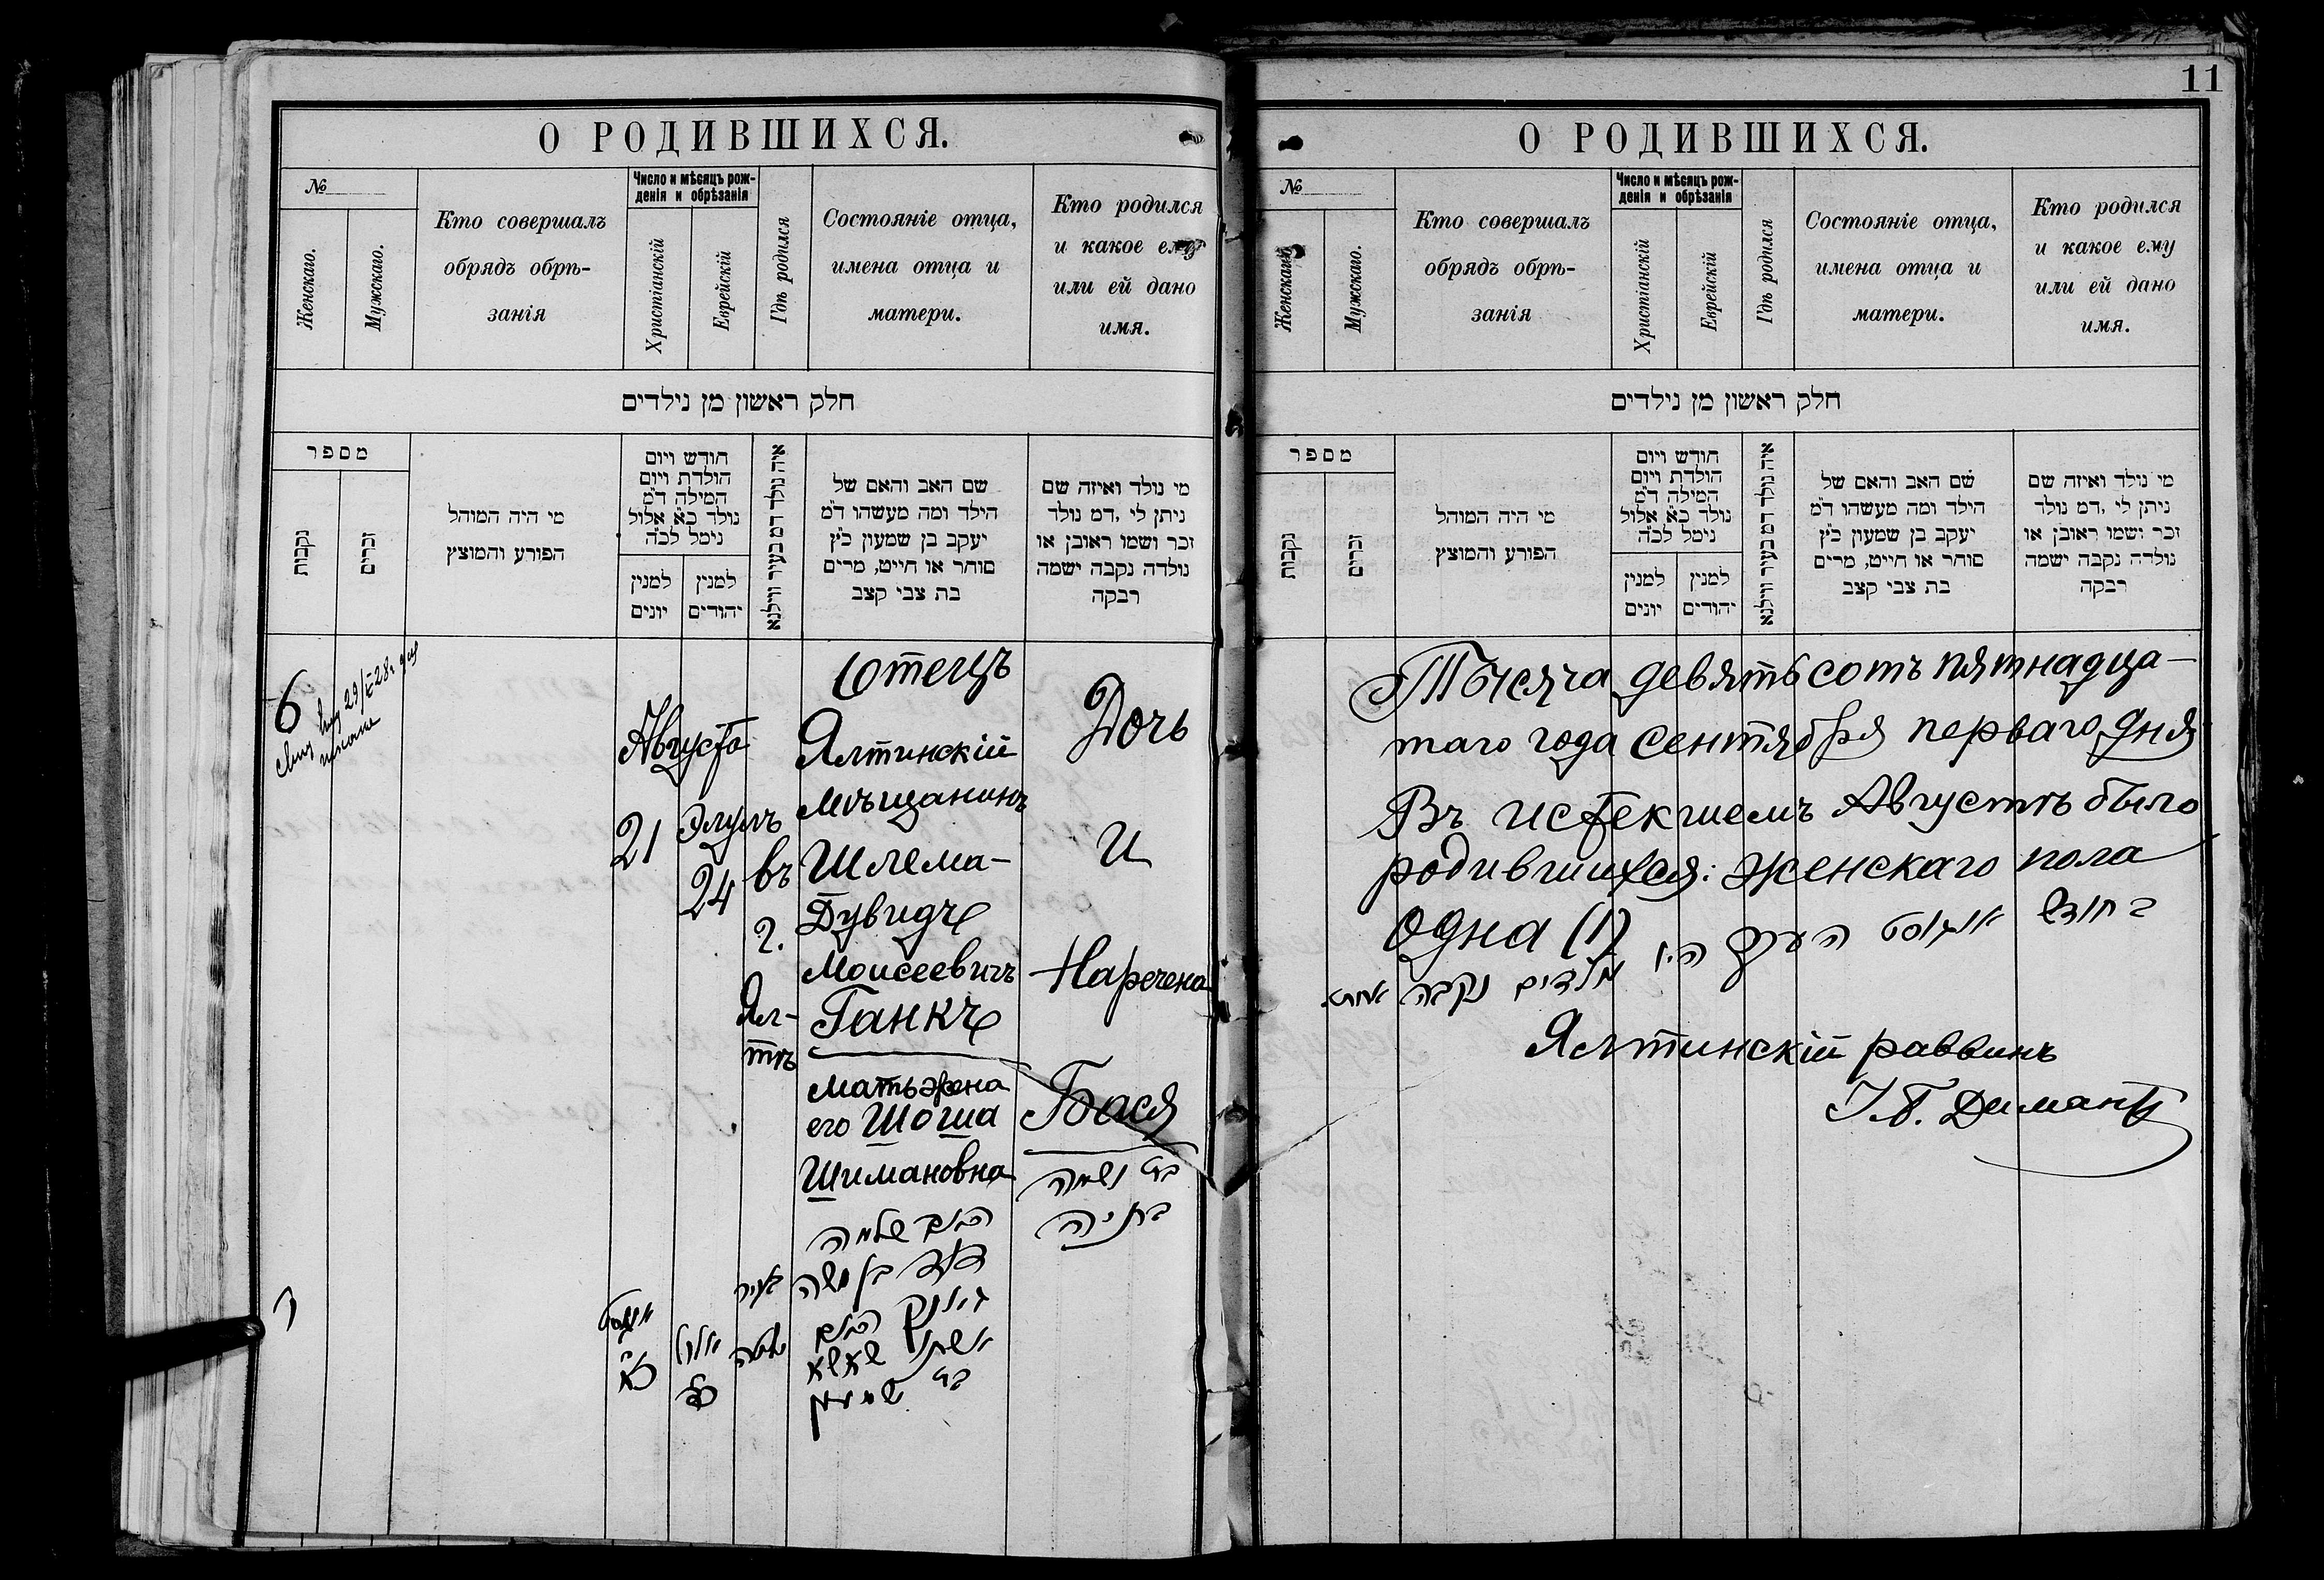 11
О РОДИВШИХСЯ.
№
Женскаго.
Мужскаго.
Кто совершалъ
обрядъ обрѣ-
занія
Число и мѣсяцъ рож-
денія и обрѣзанія
Христіанскій
Еврейскій
Гдѣ родился
Состояніе отца,
имена отца и
матери.
Кто родился
и какое ему
или ей дано
имя.
חלק ראשון מן נילדים
מספר
נקבות
זכרים
מי היה המוהל
הפורע והמוצץ
חודש ויום
הולדת ויום
המילה ד״מ
נולד כ״א אלול
נימל לכ״ה
למנין
יונים
למנין
יהודים
איה נולד דמ בעיר ווילנא
שם האב והאם של
הילד ומה מעשהו ד״מ
יעקב בן שמעון כ״ץ
סוחר או חייט, מרים
בת צבי קצב
מי נולד ואיזה שם
ניתן לי ,דמ נולד
זכר ושמו ראובן או
נולדה נקבה ישמה
רבקה
6
Августа
21
Элулъ
24
въ
г.
Ял-
тѣ
Отецъ
Ялтинскій
мѣщанинъ
Шлема-
Дувидъ
Моисеевичъ
Ганкъ
мать жена
его Шоша
Шимановна
Дочь
и
Наречена
Бася
בת ושמה
בתיה
האב שלמה
דוד בן משה
גאנק האם
אשתו שאשא
בת שמעון
בעיר
יאלטה
אלול
כד
אוגוסט
כא
ו
О РОДИВШИХСЯ.
№
Женскаго.
Мужскаго.
Кто совершалъ
обрядъ обрѣ-
занія
Число и мѣсяцъ рож-
денія и обрѣзанія
Христіанскій
Еврейскій
Гдѣ родился
Состояніе отца,
имена отца и
матери.
Кто родился
и какое ему
или ей дано
имя.
חלק ראשון מן נילדים
מספר
נקבות
זכרים
מי היה המוהל
הפורע והמוצץ
חודש ויום
הולדת ויום
המילה ד״מ
נולד כ״א אלול
נימל לכ״ה
למנין
יונים
למנין
יהודים
איה נולד דמ בעיר ווילנא
שם האב והאם של
הילד ומה מעשהו ד״מ
יעקב בן שמעון כ״ץ
סוחר או חייט, מרים
בת צבי קצב
מי נולד ואיזה שם
ניתן לי ,דמ נולד
זכר ושמו ראובן או
נולדה נקבה ישמה
רבקה
Тысяча девятьсотъ пятнадца-
таго года сентября перваго дня
Въ истекшемъ Августѣ было
родившихся: женскаго пола
одна (1)
בחודש אוגוסט העבר היו
נולדים נקבה אחת.
Ялтинскій раввинъ
І. Б. Димантъ